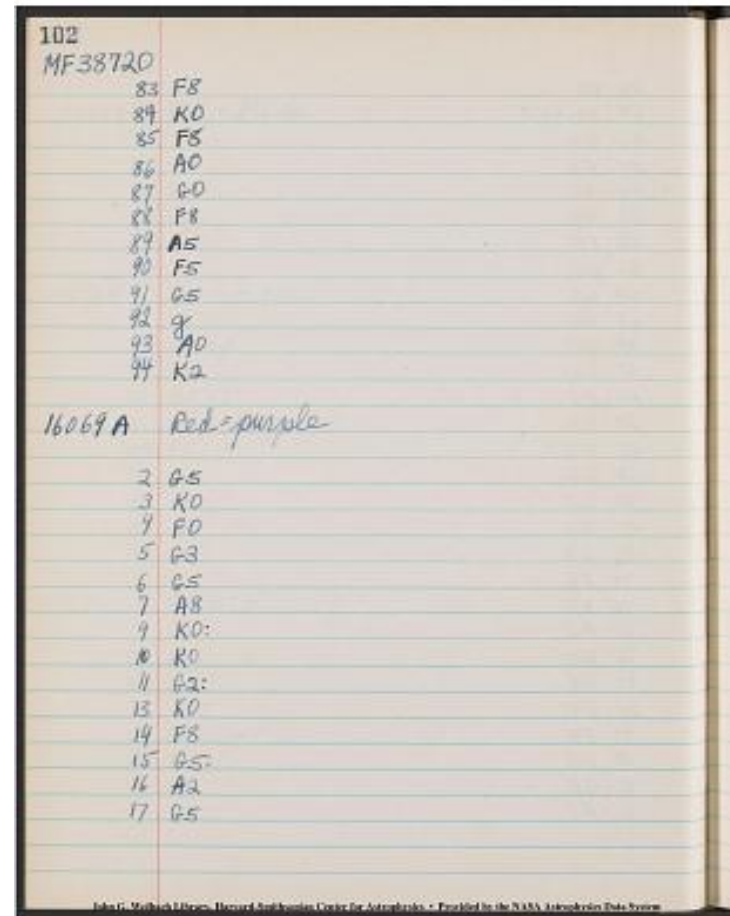 102
MF38720
83 F8
84 K0
85 F8
86 A0
87 G0
88 F8
89 A5
90 F5
91 G5
92 g
93 A0
94 K2
16069 A Red = purple
2 G5
3 K0
4 F0
5 G3
6 G5
7 A8
9 K0:
10 K0
11 G2:
13 K0
14 F8
15 G5:
16 A2
17 G5
John G. Wolbach Library, Harvard-Smithsonian Center for Astrophysics • Provided by the NASA Astrophysics Data System